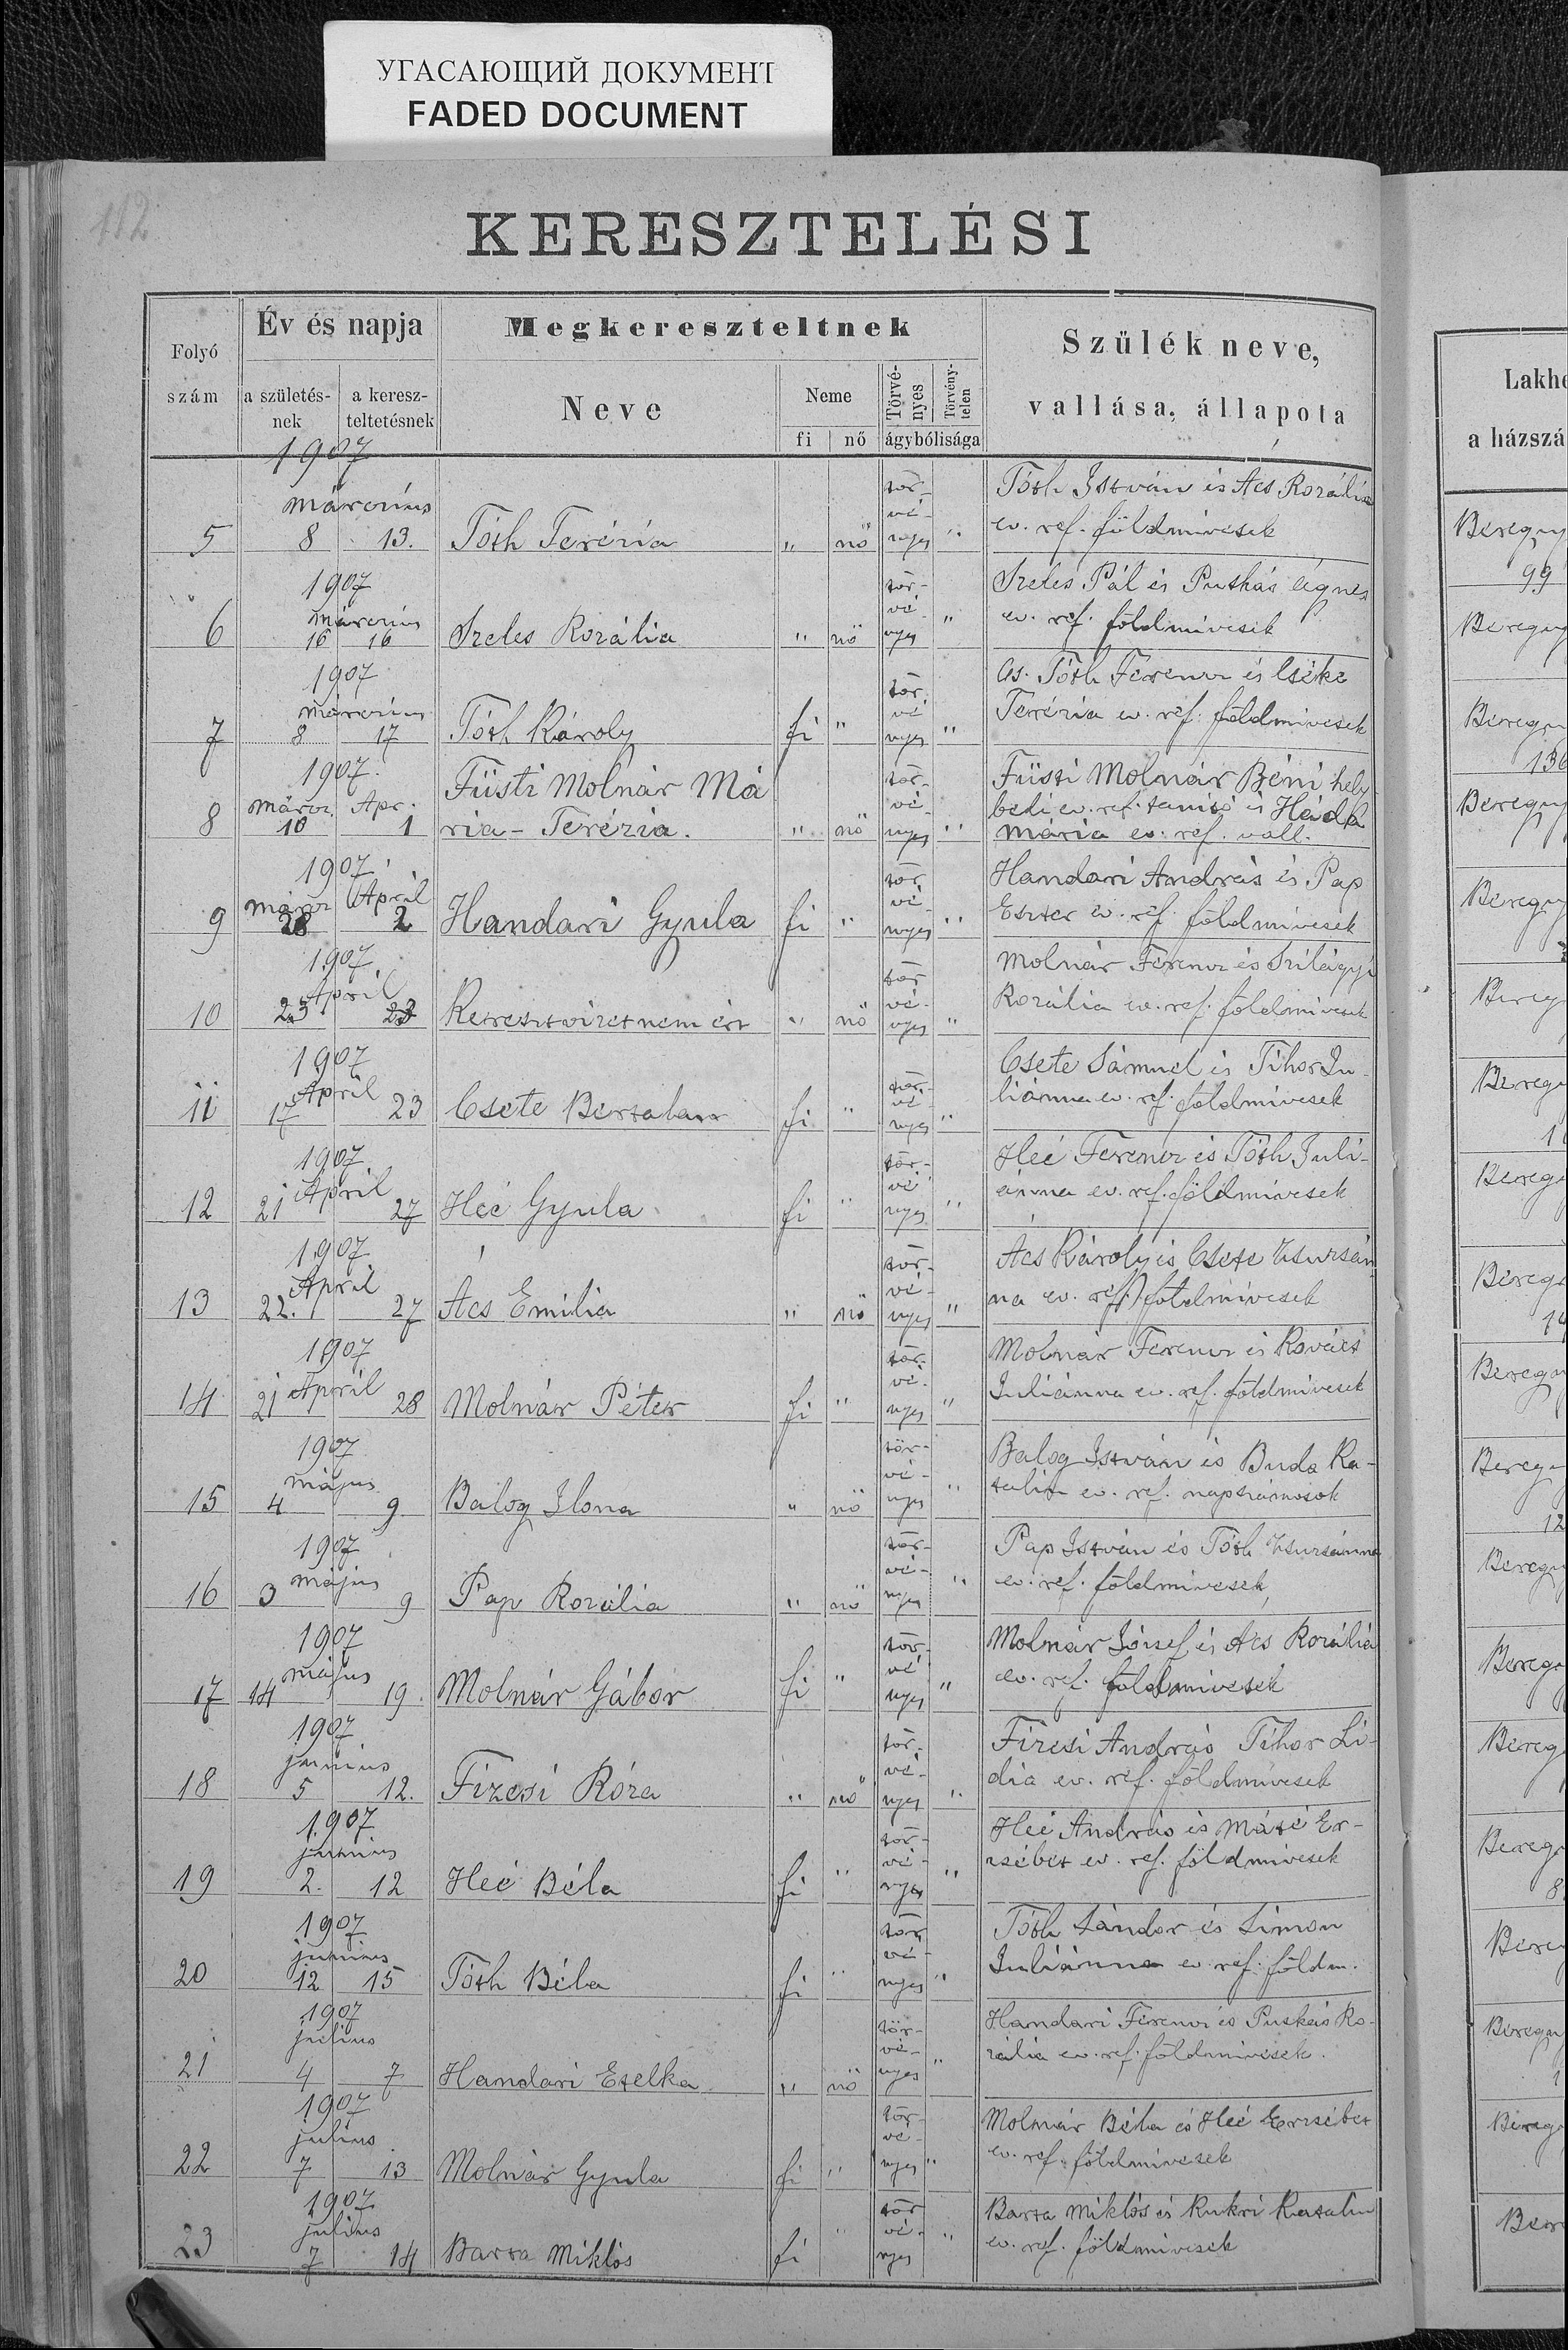 УГАСАЮЩИЙ ДОКУМЕНТ
FADED DOCUMENT
112
KERESZTELÉSI
Folyó szám
Év és napja
a születés-nek
a keresz-teltetésnek
Megkereszteltnek
Neve
Neme
fi nő
Törvé-nyes
Törvény-telen
ágybólisága
Szülék neve,
vallása, állapota
Lakhe
a házszá
1907
márczius
5 8 13. Tóth Terézia " nő tör-vé-nyes "
Tóth István és Ács Rozália
ev. ref. földmivesek
Bereguj
99
1907
márczius
6 16 16 Szeles Rozália " nő tör-vé-nyes "
Szeles Pál és Puskás Ágnes
ev. ref. földmivesek
Bereguj
1907
márczius
7 8 17 Tóth Károly fi " tör-vé-nyes "
Tóth Ferencz és Cseke
Terézia ev. ref. földmivesek
Beregu
136
1907.
márcz. Apr.
8 10 1 Füsti Molnár Má
ria-Terézia. " nő tör-vé-nyes "
Füsti Molnár Béni hely
beli ev. ref. tanító és Háda
Mária ev. ref. vall.
Bereguj
1907
márcz Április
9 28 2 Handari Gyula fi " tör-vé-nyes "
Handari András és Pap
Eszter ev. ref. földmivesek
Beregu
1907
April
10 23 23 Keresztvizet nem ért " nő tör-vé-nyes "
Molnár Ferencz és Szilágyi
Rozália ev. ref. földmivesek
Bereg
1907
April
11 17 23 Csete Bertalan fi " tör-vé-nyes "
Csete Sámuel és Tihor Ju-
liánna ev. ref. földmivesek
Beregu
1
1907
April
12 21 27 Heé Gyula fi " tör-vé-nyes "
Heé Ferencz és Tóth Juli-
ánna ev. ref. földmivesek
Beregu
1907
April
13 22. 27 Ács Emilia " nő tör-vé-nyes "
Ács Károly és Csete Zsuzsán
na ev. ref. földmivesek
Beregu
14
1907
April
14 21 28 Molnár Péter fi " tör-vé-nyes "
Molnár Ferencz és Kovács
Juliánna ev. ref. földmivesek
Beregu
1907
május
15 4 9 Balog Ilona " nő tör-vé-nyes "
Balog István és Buda Ka-
talin ev. ref. napszámosok
Beregu
12
1907
május
16 3 9 Pap Rozália " nő tör-vé-nyes "
Pap István és Tóth Zsuzsánna
ev. ref. földmivesek
Beregu
1907
május
17 14 19. Molnár Gábor fi " tör-vé-nyes "
Molnár József és Ács Rozália
ev. ref. földmivesek
Beregu
1907
junius
18 5 12. Fizesi Róza " nő tör-vé-nyes "
Fizesi András Tihor Li-
dia ev. ref. földmivesek
Bereg
1907
junius
19 2. 12 Heé Béla fi " tör-vé-nyes "
Heé András és Máté Er-
zsébet ev. ref. földmivesek
Beregu
8
1907
junius
20 12 15 Tóth Béla fi " tör-vé-nyes "
Tóth Sándor és Simon
Juliánna ev. ref. földm.
Bere
1907
julius
21 4 7 Handari Etelka " nő tör-vé-nyes "
Handari Ferencz és Puskás Ro-
zália ev. ref. földmivesek.
Beregu
1907
julius
22 7 13 Molnár Gyula fi " tör-vé-nyes "
Molnár Béla és Heé Erzsébet
ev. ref. földmivesek
Bereg
1907
julius
23 7 14 Barta Miklós fi " tör-vé-nyes "
Barta Miklós és Kukri Katalin
ev. ref. földmivesek
Bere